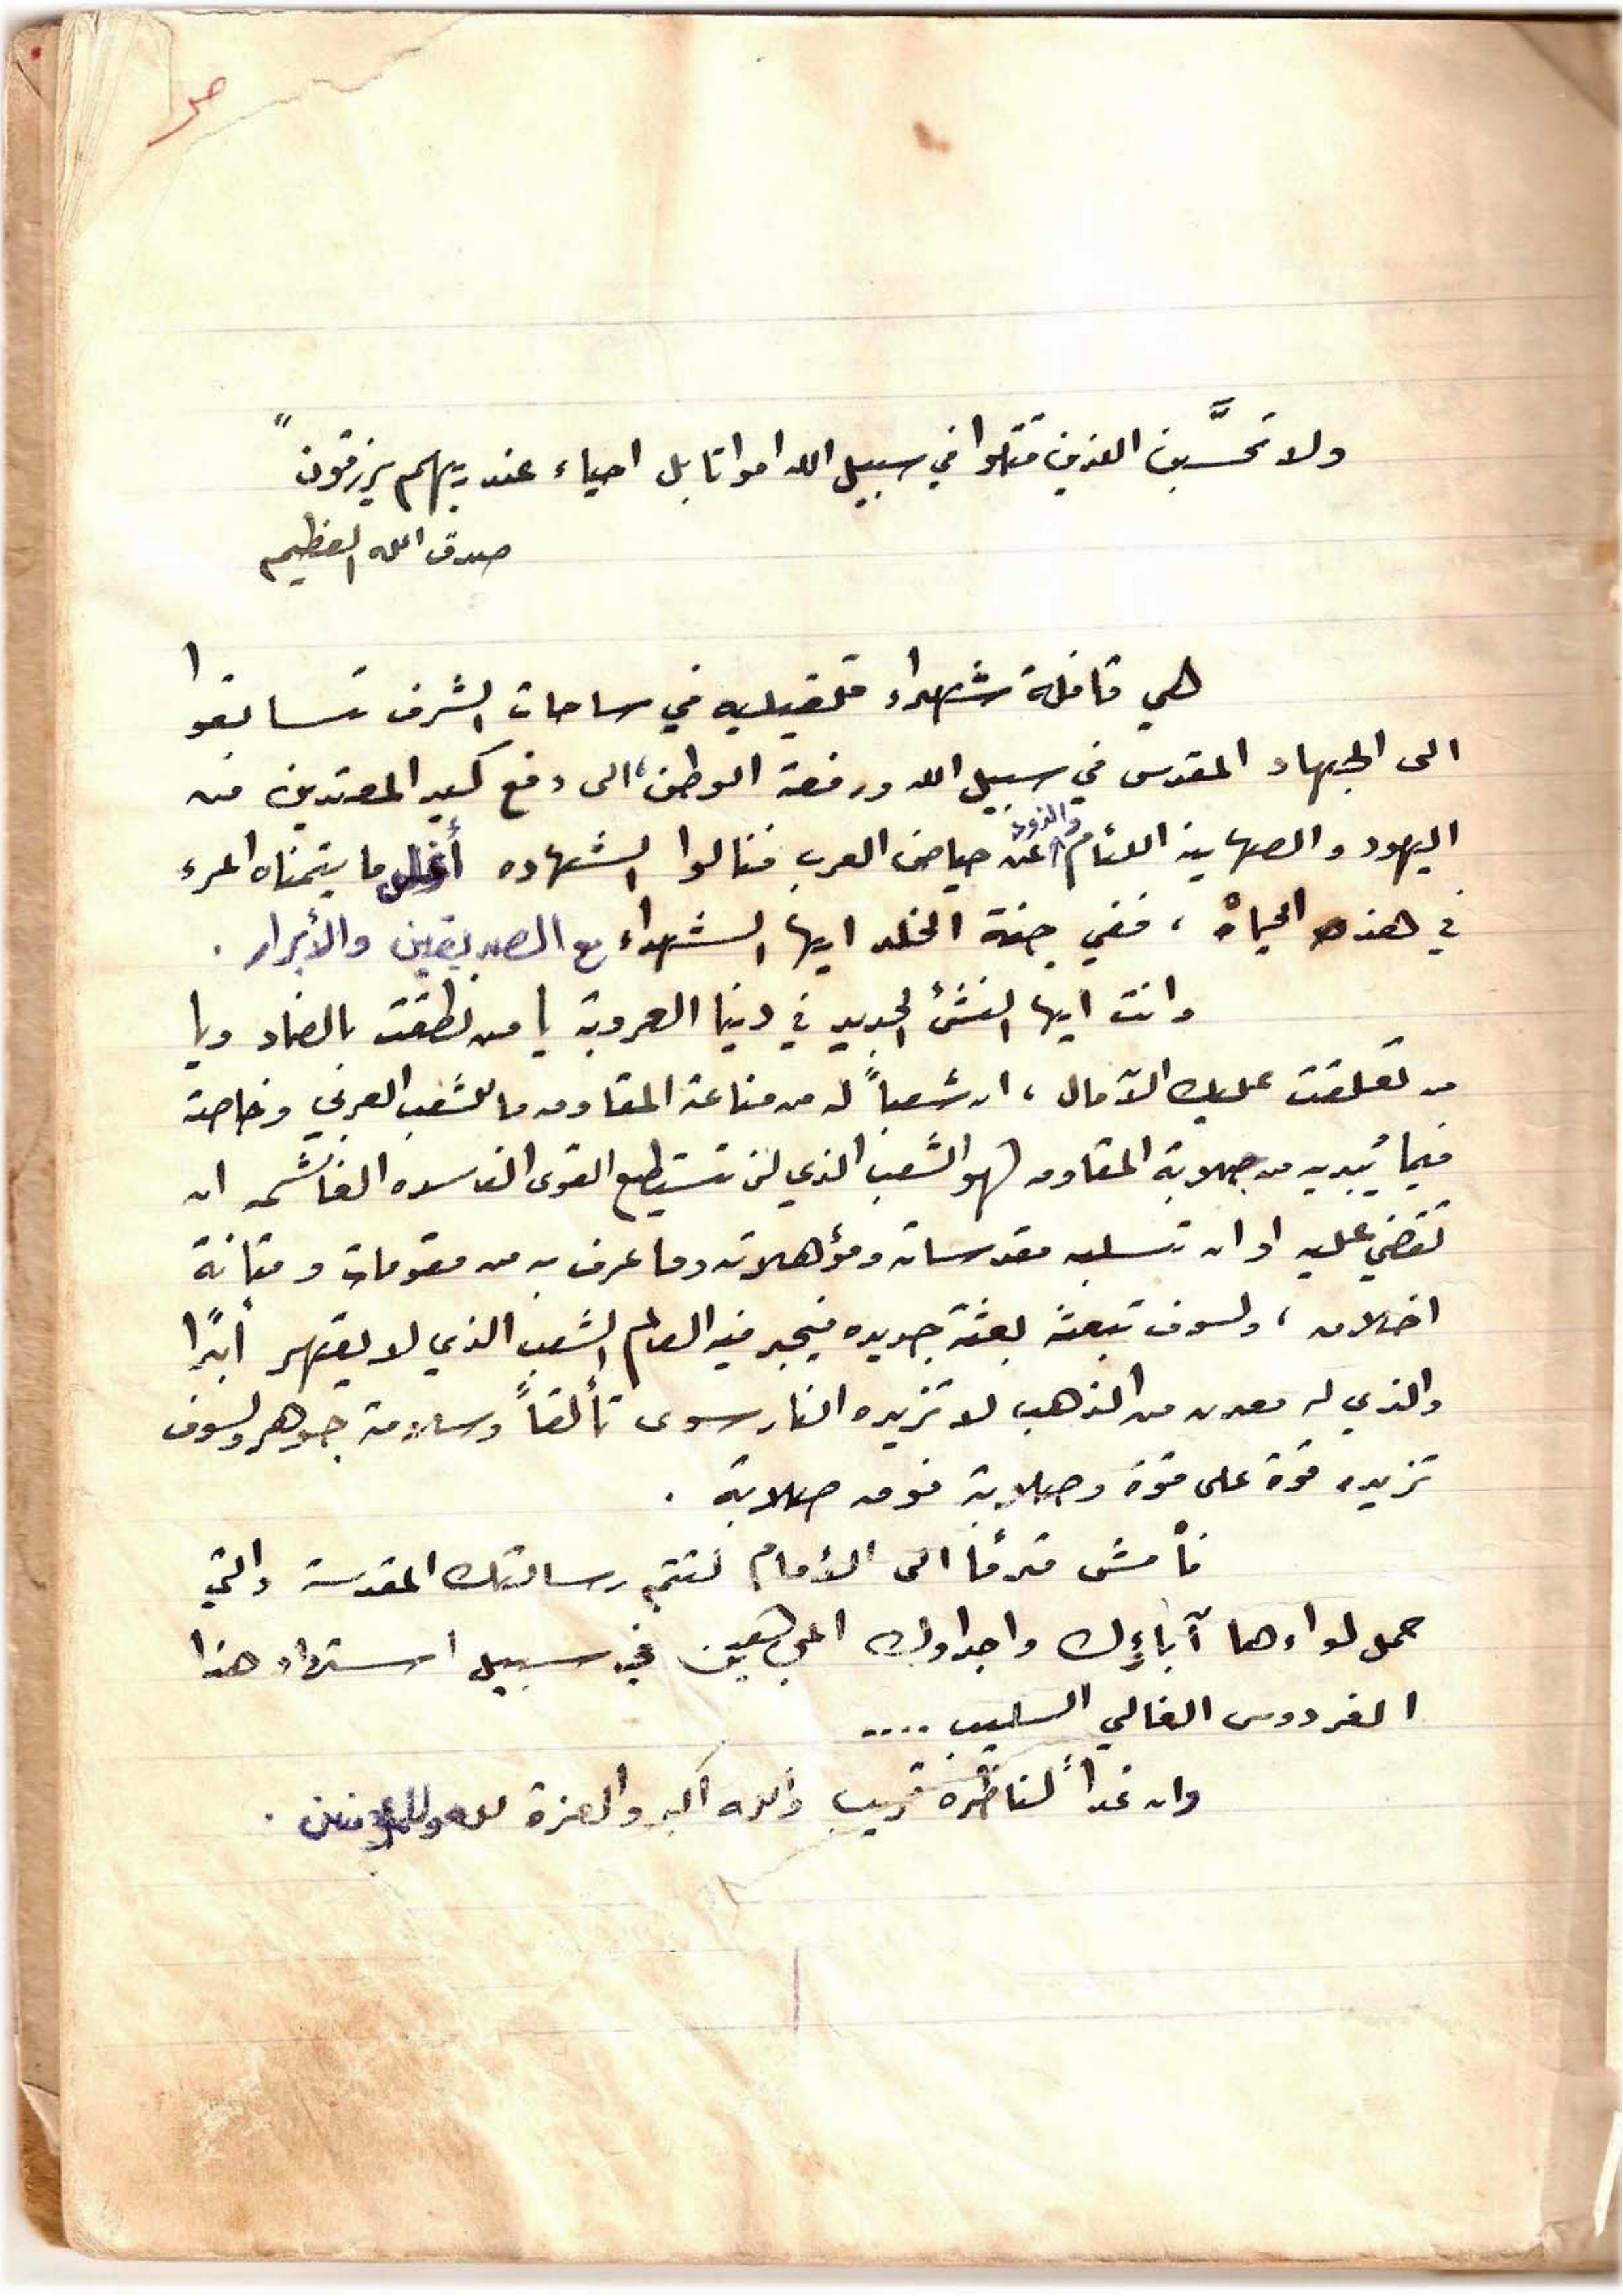 ولا تحسَّبن الذين قتلوا في سبيل الله امواتا بل احياء عند ربهم يرزقون"
صدق الله العظيم
هي قافلة شهداء قلقيليه في ساحات الشرف تسابقوا
الى الجهاد المقدس في سبيل الله ورفعة الوطن، الى دفع كيد المعتدين من
اليهود والصهاينة اللئام والذود عن حياض العرب فنالوا الشهاده أغلى ما يتمناه المرء
في هذه الحياة ، ففي جنة الخلد ايها الشهداء مع الصديقين والأبرار .
وانت ايها النشئ الجديد في دنيا العروبة يا من نطقت بالضاد ويا
من تعلقت عليك الآمال ، ان شعباً له من مناعة المقاومه ما للشعب العربي وخاصة
فيما يُبديه من صلابة المقاومه لهو الشعب الذي لن تستطيع القوى الفاسده الغاشمه ان
تقضي عليه او ان تسلبه مقدساته ومؤهلاته وما عرف به من مقومات ومتانة
اخلاق ، ولسوف تبعثه بعثة جديده فيجد فيه العالم الشعب الذي لا يقهر أبدًا
والذي له معدن من الذهب لا تزيده النار سوى تألقاً وسلامة جوهر ولسوف
تزيده قوة على قوة وصلابة فوق صلابة .
فأمش قدماً الى الأمام لتتم رسالتك المقدسة والتي
حمل لواءها آباءك واجدادك المجاهدين في سبيل استرداد هذا
الفردوس الغالي السليب ....
وان غداً لناظره قريب والله اكبر والعزة لله وللمؤمنين .